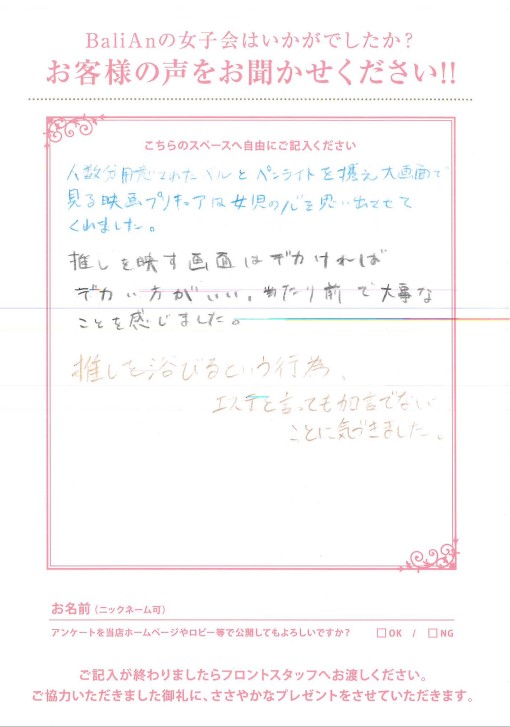 BaliAnの女子会はいかがでしたか？
お客様の声をお聞かせください!!
こちらのスペースへ自由にご記入ください
人数分用意されたベルとペンライトを携え大画面で
見る映画プリキュアは女児の心を思い出させて
くれました。
推しを映す画面はデカければ
デカい方がいい。当たり前で大事な
ことを感じました。
推しを浴びるという行為、
エステと言っても加言でない
ことに気づきました。
お名前（ニックネーム可）
アンケートを当店ホームページやロビー等で公開してもよろしいですか？ □OK / □NG
ご記入が終わりましたらフロントスタッフへお渡しください。
ご協力いただきました御礼に、ささやかなプレゼントをさせていただきます。